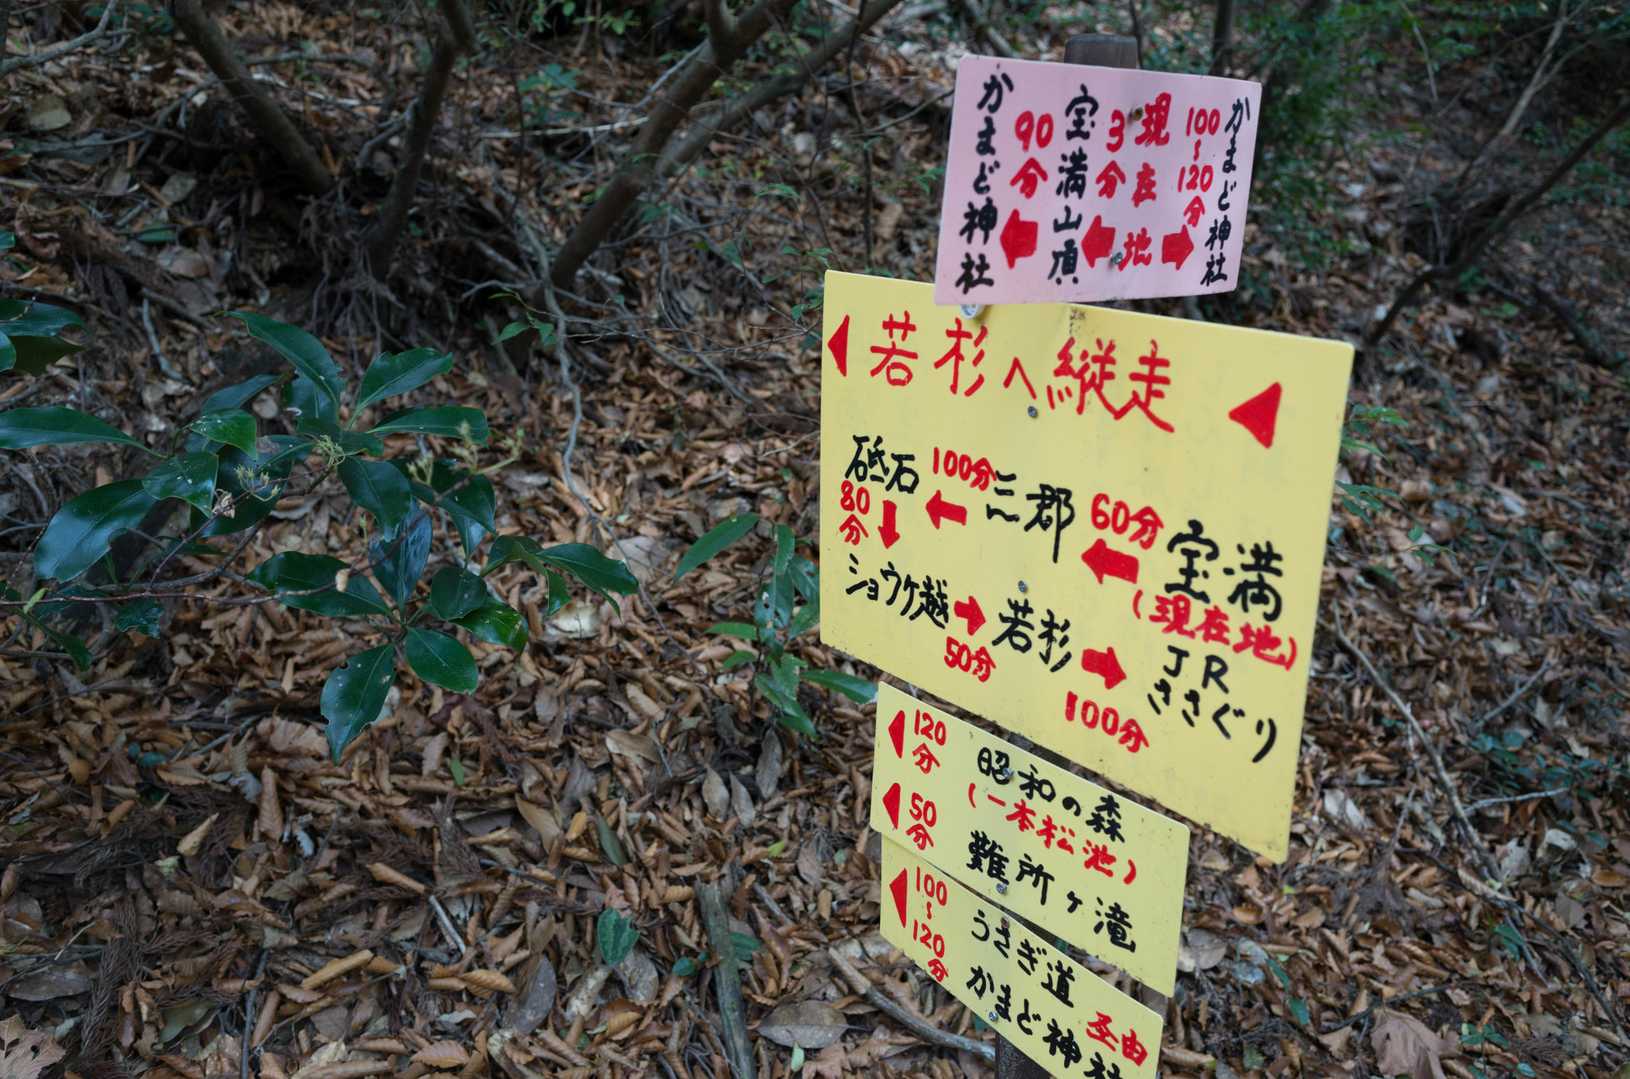 かまど神社
90分
宝満山頂
3分
現在地
100~120分
かまど神社
若杉へ縦走
砥石 100分 三郡 60分 宝満
(現在地)
80分
ショウケ越 50分 若杉 100分 JRささぐり
120分 昭和の森
(一本松池)
50分 難所ヶ滝
100~120分 うさぎ道
かまど神社